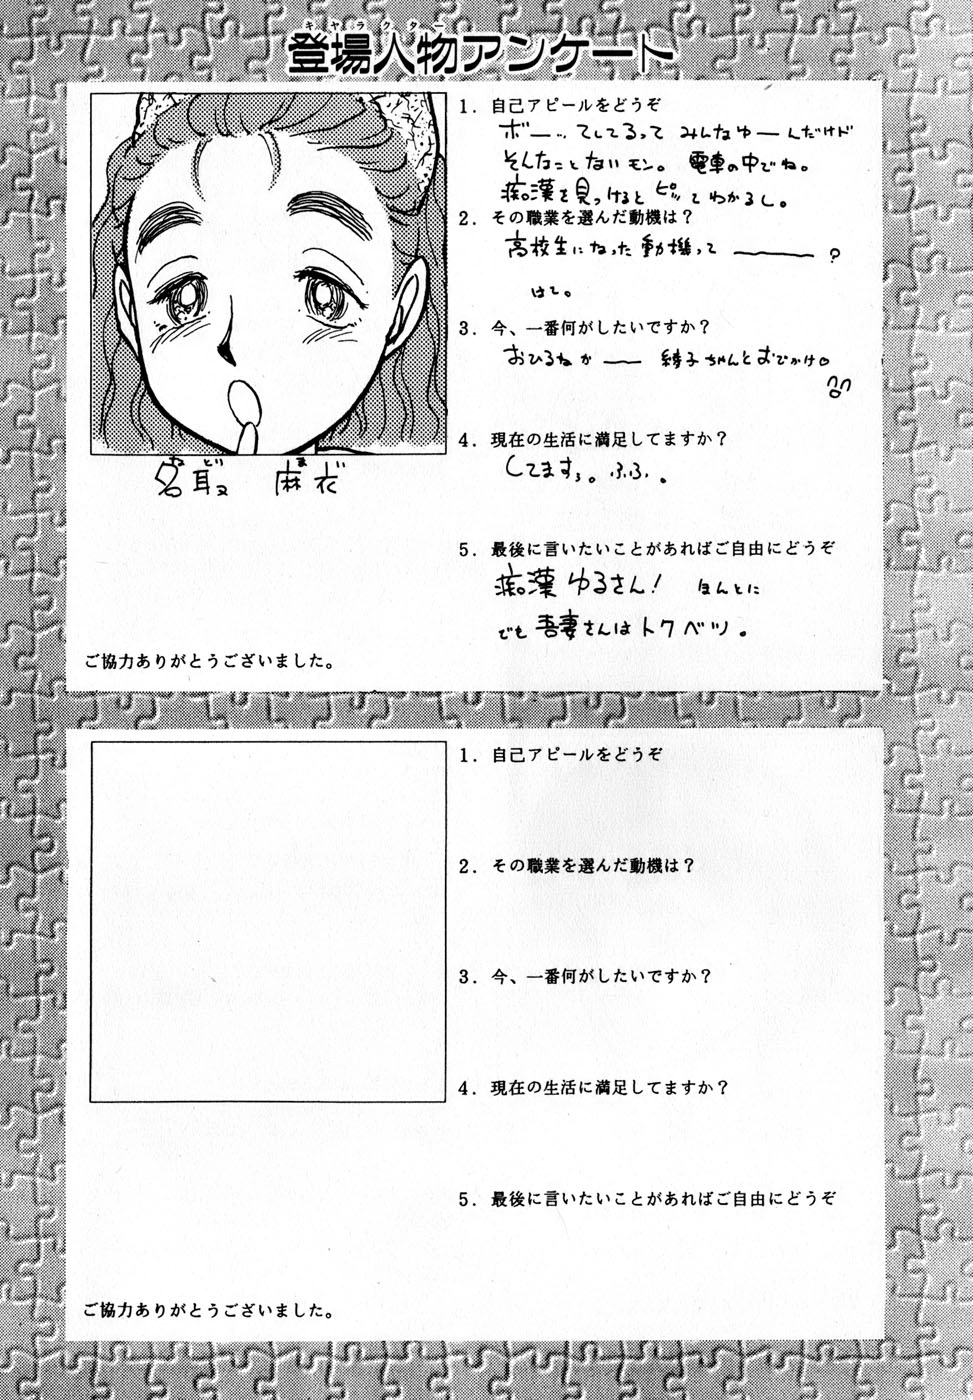 キャラクター
登場人物アンケート
1. 自己アピールをどうぞ
ボー… てしてるって みんなゆーんだけド
そんなことないモン。 電車の中でね。
痴漢を見つけるとピッとわかるし。
2. その職業を選んだ動機は？
高校生になった動機って ――― ?
はて。
3. 今、一番何がしたいですか？
おひるねか ―― 綾子ちゃんとおでかけ♡
4. 現在の生活に満足してますか？
してますぅ。ふふ。
5. 最後に言いたいことがあればご自由にどうぞ
痴漢ゆるさん! ほんとに
でも 吾妻さんはトクベツ。
ま い
麻衣
ご協力ありがとうございました。
1. 自己アピールをどうぞ
2. その職業を選んだ動機は？
3. 今、一番何がしたいですか？
4. 現在の生活に満足してますか？
5. 最後に言いたいことがあればご自由にどうぞ
ご協力ありがとうございました。